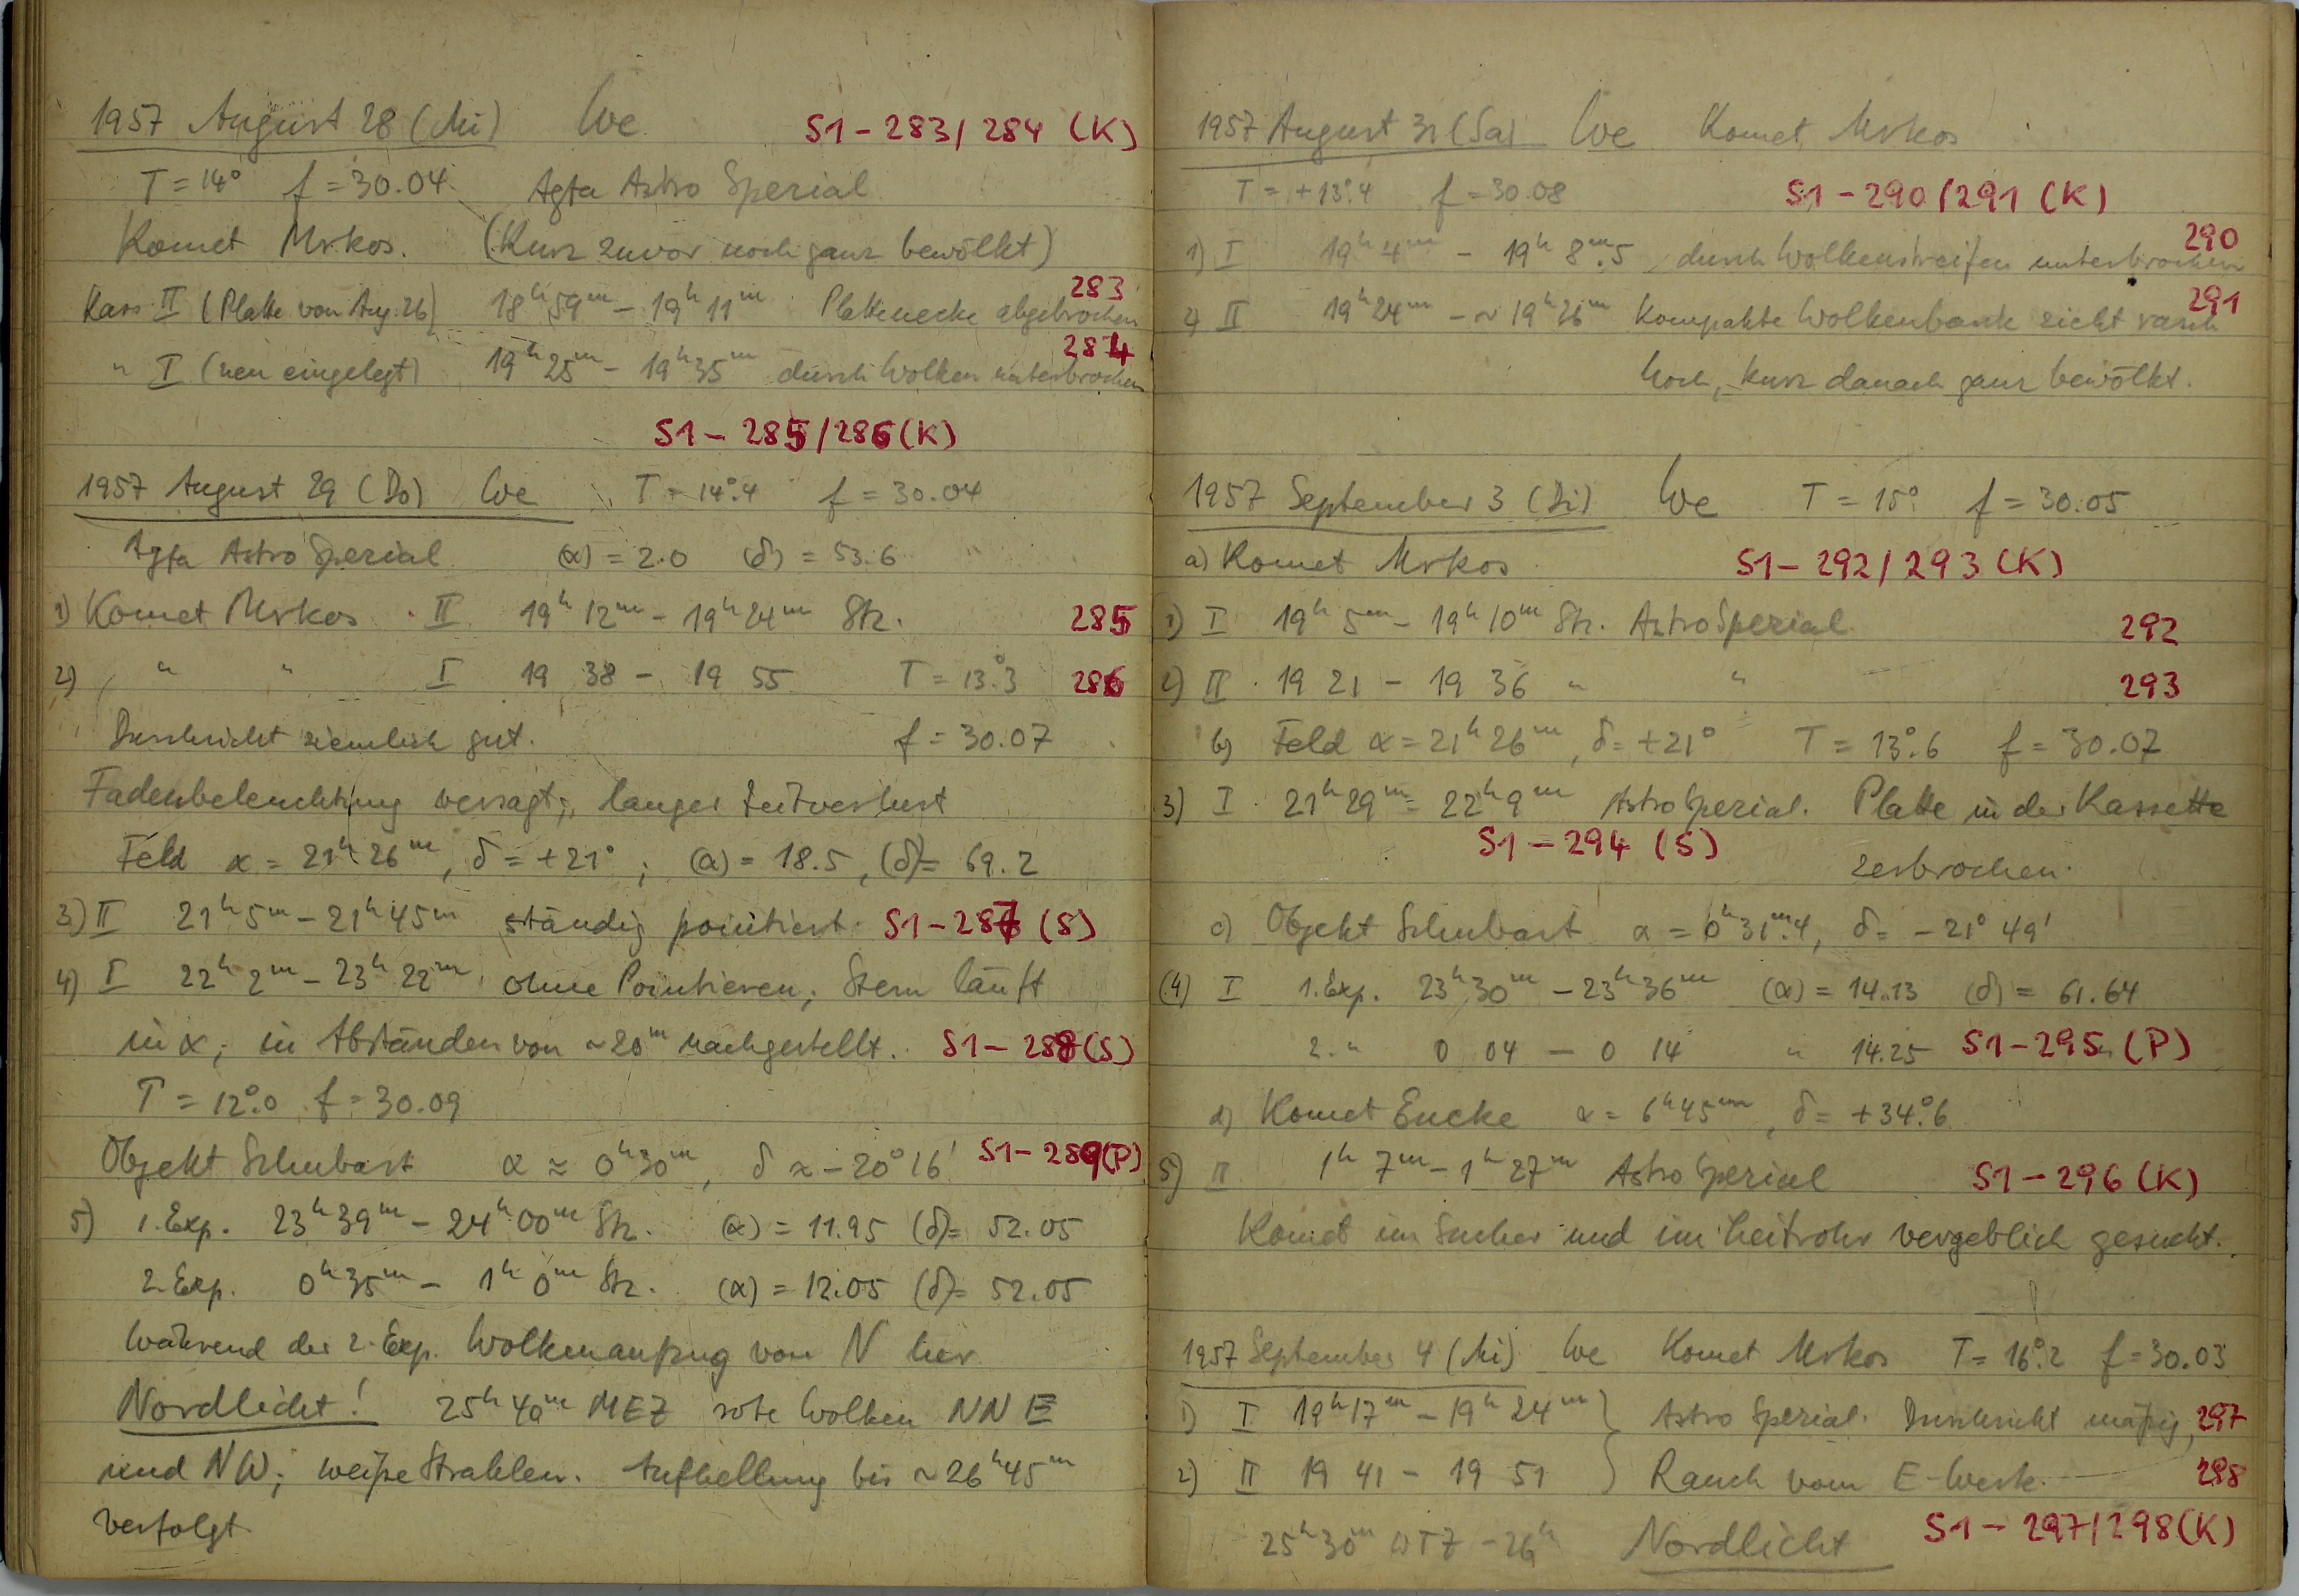 1957 August 28 (Mi) We S1-283/284 (K)
T = 14° f = 30.04 Agfa Astro Spezial
Komet Mrkos. (Kurz zuvor noch ganz bewölkt)
283
Kass. II (Platte von Aug. 26) 18ʰ59ᵐ - 19ʰ11ᵐ Plattenecke abgebrochen
284
" I (neu eingelegt) 19ʰ25ᵐ - 19ʰ35ᵐ durch Wolken unterbrochen
S1-285/286 (K)
1957 August 29 (Do) We T = 14°.4 f = 30.04
Agfa Astro Spezial (α) = 2.0 (δ) = 53.6
1) Komet Mrkos II 19ʰ12ᵐ - 19ʰ24ᵐ Stz. 285
2) " " I 19 38 - 19 55 T = 13°.3 286
Durchsicht ziemlich gut. f = 30.07
Fadenbeleuchtung versagt; langer Zeitverlust
Feld α = 21ʰ26ᵐ, δ = +21°; (α) = 18.5, (δ) = 69.2
3) II 21ʰ5ᵐ - 21ʰ45ᵐ ständig pointiert. S1-287 (S)
4) I 22ʰ2ᵐ - 23ʰ22ᵐ, ohne Pointieren; Stern läuft
in α; in Abständen von ~20ᵐ nachgestellt. S1-288 (S)
T = 12°.0 f = 30.09
Objekt Schubart α ≈ 0ʰ30ᵐ, δ ≈ -20°16' S1-289 (P)
5) 1. Exp. 23ʰ39ᵐ - 24ʰ00ᵐ Stz. (α) = 11.95 (δ) = 52.05
2. Exp. 0ʰ35ᵐ - 1ʰ0ᵐ Stz. (α) = 12.05 (δ) = 52.05
Während der 2. Exp. Wolkenaufzug von N her
Nordlicht! 25ʰ40ᵐ MEZ rote Wolken NNE
und NW; weiße Strahlen. Aufhellung bis ~26ʰ45ᵐ
verfolgt.
1957 August 31 (Sa) We Komet Mrkos
T = +13°.4 f = 30.08 S1-290/291 (K)
290
1) I 19ʰ4ᵐ - 19ʰ8ᵐ.5, durch Wolkenstreifen unterbrochen
291
2) II 19ʰ24ᵐ - ~19ʰ26ᵐ Kompakte Wolkenbank zieht rasch
hoch, kurz danach ganz bewölkt.
1957 September 3 (Di) We T = 15° f = 30.05
a) Komet Mrkos S1-292/293 (K)
1) I 19ʰ5ᵐ - 19ʰ10ᵐ Stz. Astro Spezial 292
2) II 19 21 - 19 36 " " 293
b) Feld α = 21ʰ26ᵐ, δ = +21° T = 13°.6 f = 30.07
3) I 21ʰ29ᵐ - 22ʰ9ᵐ Astro Spezial. Platte in der Kassette
S1-294 (S)
zerbrochen.
c) Objekt Schubart α = 0ʰ31ᵐ.4, δ = -21°49'
(4) I 1. Exp. 23ʰ30ᵐ - 23ʰ36ᵐ (α) = 14.13 (δ) = 61.64
2. " 0 04 - 0 14 " 14.25 S1-295 (P)
d) Komet Encke α = 6ʰ45ᵐ, δ = +34°.6
5) II 1ʰ7ᵐ - 1ʰ27ᵐ Astro Spezial S1-296 (K)
Komet im Sucher und im Leitrohr vergeblich gesucht.
1957 September 4 (Mi) We Komet Mrkos T = 16°.2 f = 30.03
1) I 19ʰ17ᵐ - 19ʰ24ᵐ } Astro Spezial. Durchsicht mäßig, 297
2) II 19 41 - 19 51 } Rauch vom E-Werk. 298
25ʰ30ᵐ WTZ - 26ʰ Nordlicht S1-297/298 (K)